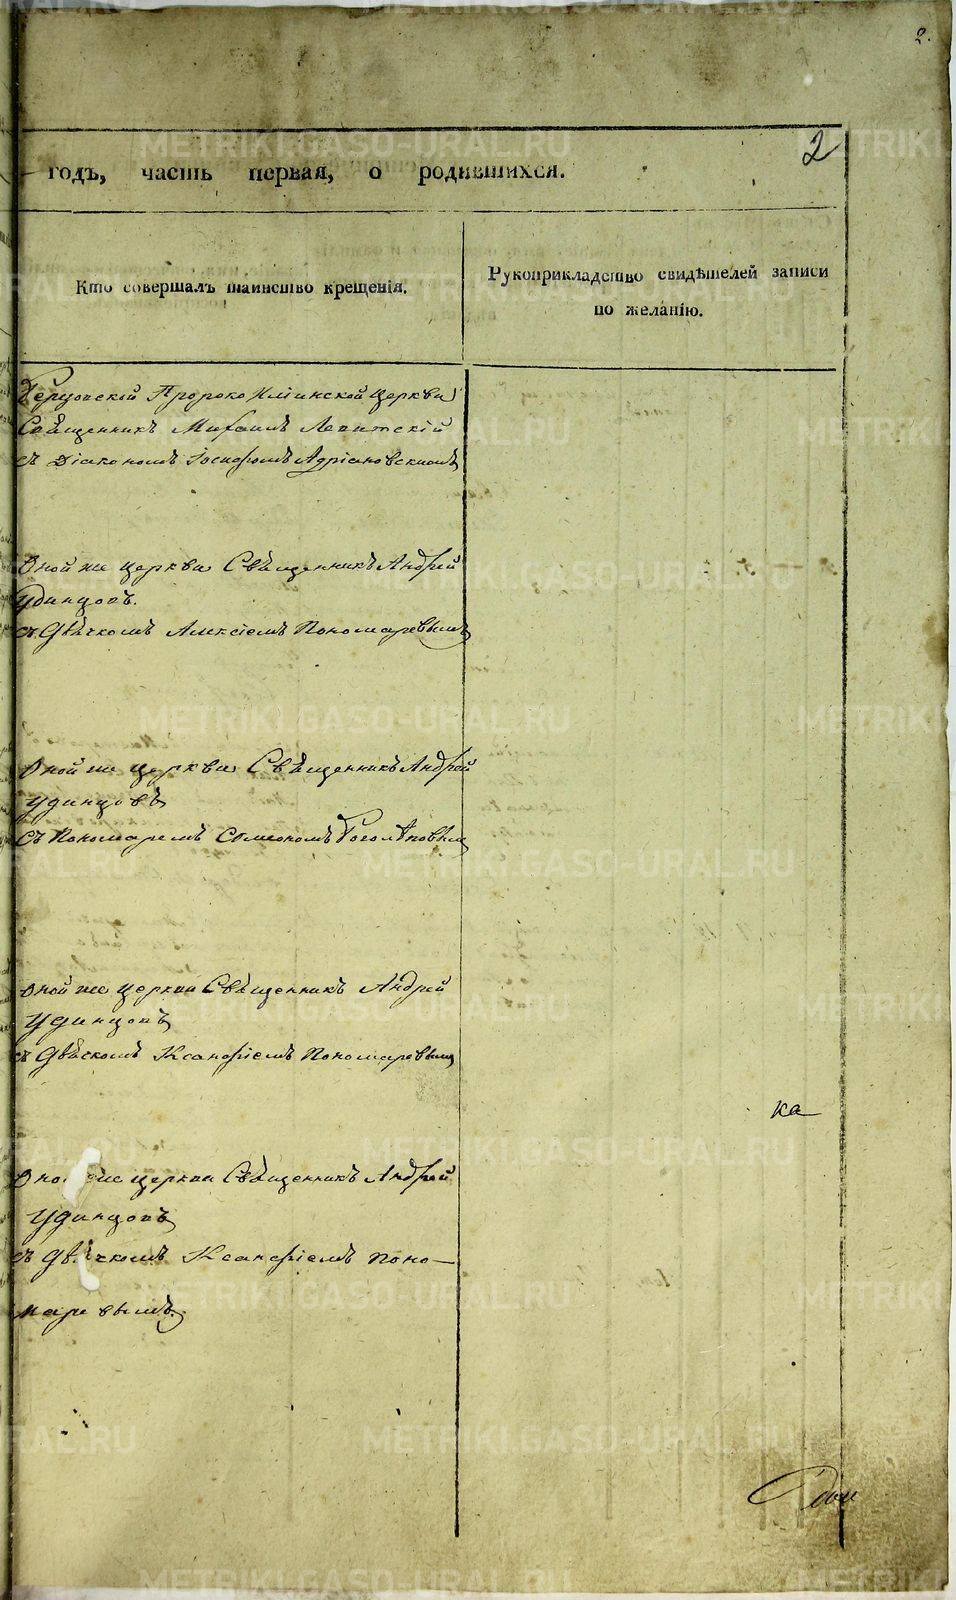 2.
2
годъ, часть первая, о родившихся.
Кто совершалъ таинство крещенія.
Рукоприкладство свидѣтелей записи
по желанію.
Пророко Илiинской Церкви
Священникъ Михаилъ Левитскій
съ Діакономъ Іосифомъ Адріановскимъ
Оной же церкви Священникъ Андрей
Удинцовъ.
съ Дьячкомъ Алексіемъ Пономаревымъ
Оной же церкви Священникъ Андрей
Удинцовъ
съ Пономаремъ Симеономъ
Оной же церкви Священникъ Андрей
Удинцовъ
съ Дьячкомъ Ксанфіемъ Пономаревымъ
ка
Оной же церкви Священникъ Андрей
Удинцовъ
съ Дьячкомъ Ксанфіемъ Поно-
маревымъ.
METRIKI.GASO-URAL.RU